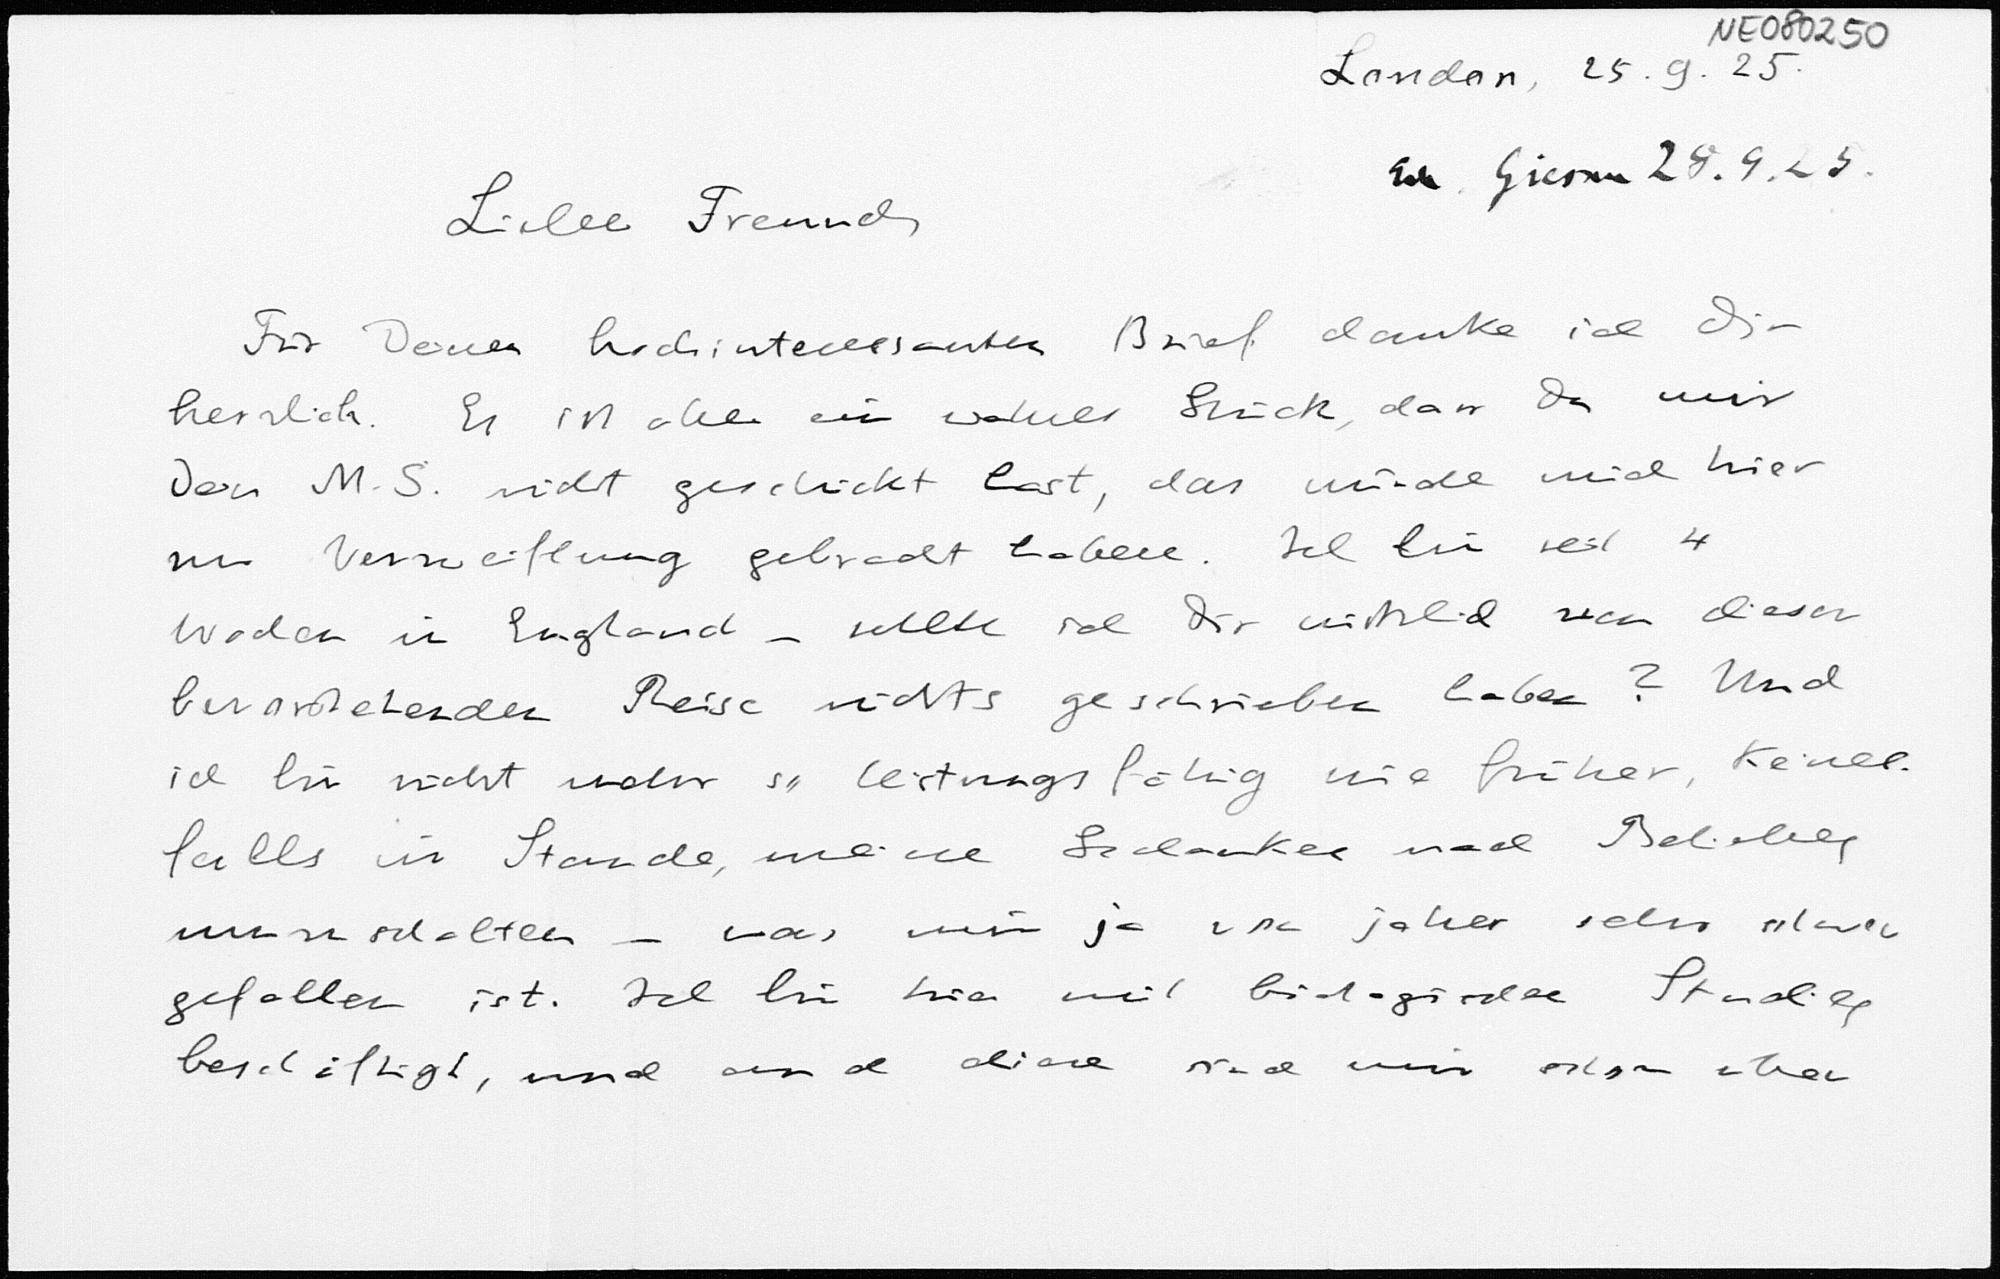 NE080250
London, 25.9.25.
Giessen 28.9.25.
Lieber Freund,
Für Deinen hochinteressanten Brief danke ich Dir
herzlich. Es ist aber ein wahres Glück, dass Du mir
Dein M.S. nicht geschickt hast, das würde mich hier
zur Verzweiflung gebracht haben. Ich bin seit 4
Wochen in England – sollte ich Dir wirklich von dieser
bevorstehenden Reise nichts geschrieben haben? Und
ich bin nicht mehr so leistungsfähig wie früher, keines-
falls im Stande, meine Gedanken nach Belieben
umzuschalten – was mir ja von jeher sehr schwer
gefallen ist. Ich bin hier mit biologischen Studien
beschäftigt, und auch diese sind mir schon über